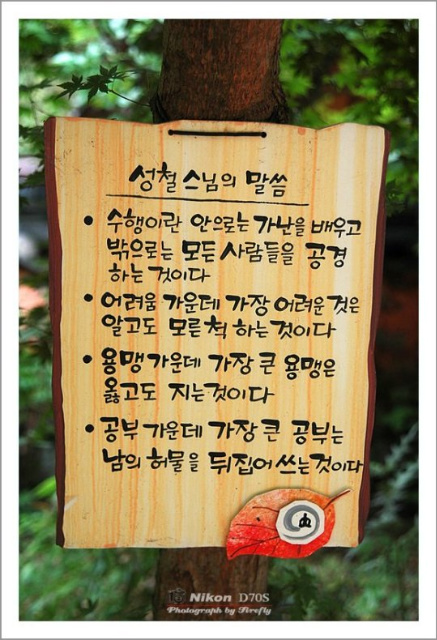 성철 스님의 말씀
• 수행이란 안으로는 가난을 배우고
밖으로는 모든 사람들을 공경
하는 것이다
• 어려움 가운데 가장 어려운 것은
알고도 모른척 하는 것이다
• 용맹 가운데 가장 큰 용맹은
옳고도 지는 것이다
• 공부 가운데 가장 큰 공부는
남의 허물을 뒤집어 쓰는 것이다
Nikon D70S
Photograph by Firefly